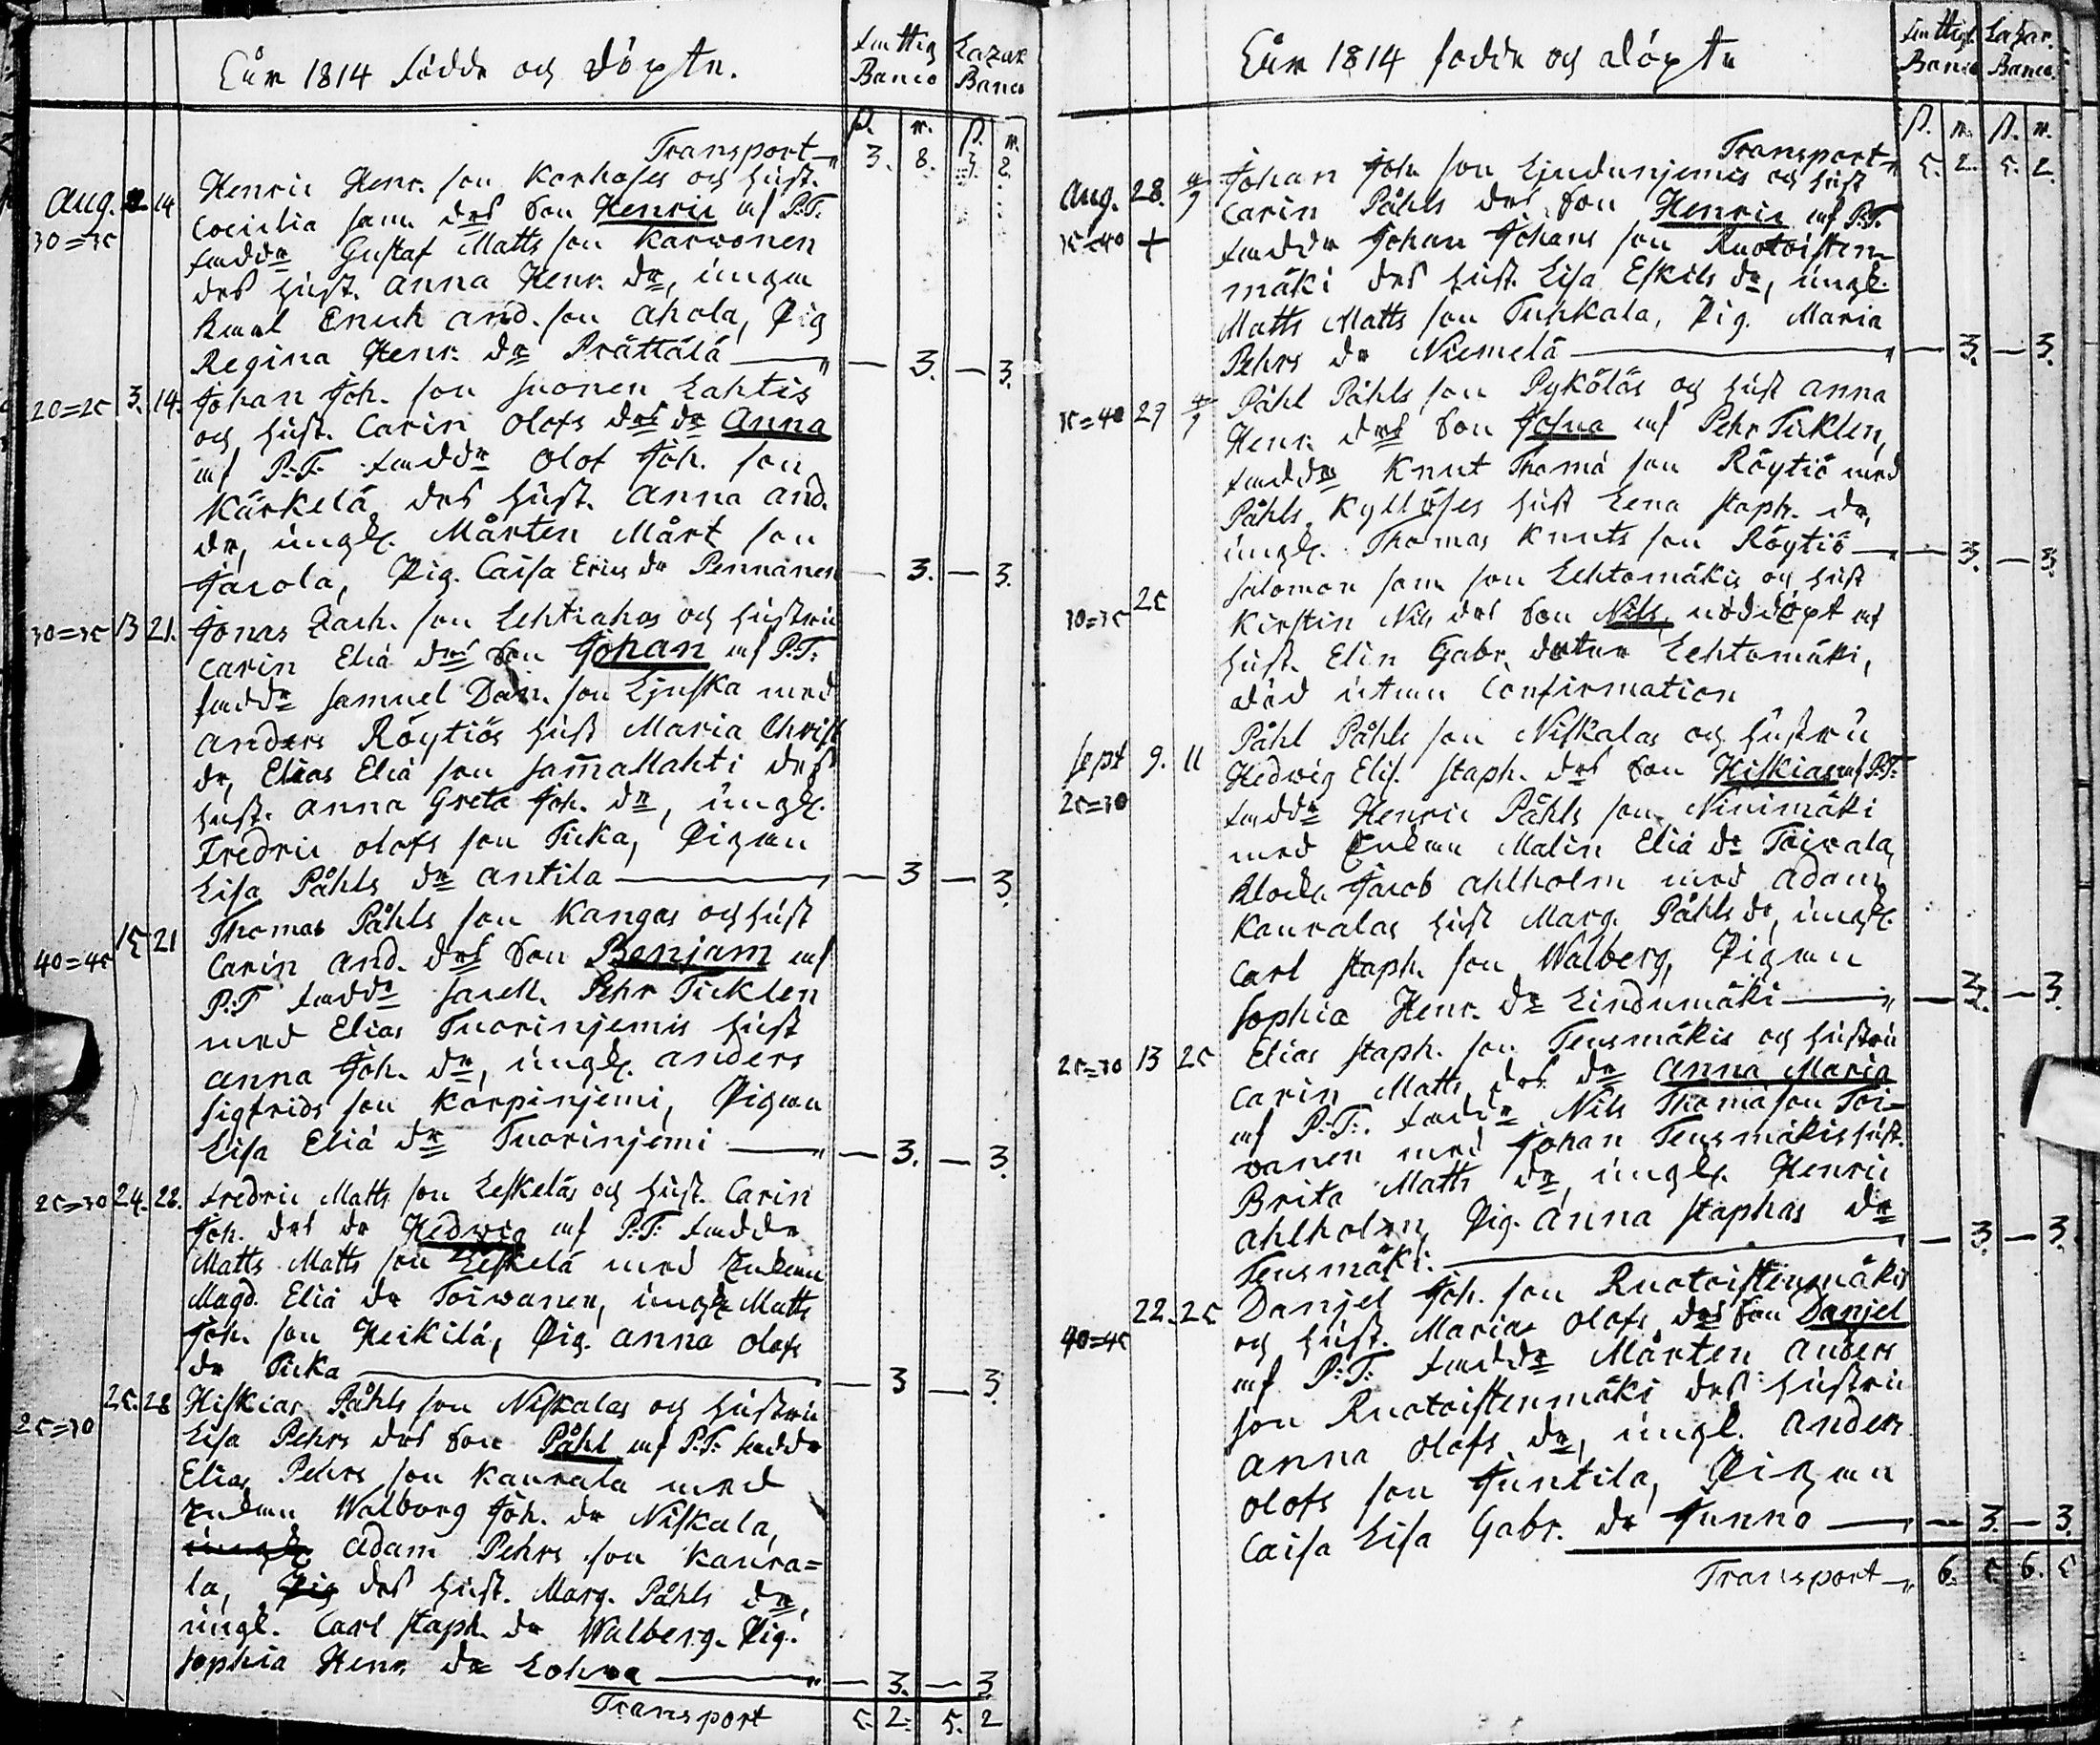 Åhr 1814 födde och döpte.
Fattig Banco
Lazar Banco
ß. r. ß. r.
Transport 3. 8. 3. 8.
Aug. 2 14 Henric Henr. son Karhoses och hust.
30=35 Cecilia Sam. drs Son Henric af P:T:
faddr Gustaf Matts son Karwonen
des hust. Anna Henr. dr,
Enich And. son Ahola, Pig
Regina Henr. dr Prättälä — 3. — 3.
20=25 3. 14. Johan Joh. son Suonen Lahtis
och hust. Carin Olofs drs dr Anna
af P:T: faddr Olof Joh. son
Kärkelä des hust. Anna And.
dr, ungk. Mårten Mårt son
Jarola, Pig. Caisa Erics dr Pennanen — 3. — 3.
30=35 13 21. Jonas Zach. son Lehtiahos och hustru
Carin Eliä drs Son Johan af P:T:
faddr Samuel Dan. son Ljuska med
Anders Röytiös hust Maria Christ
dr, Elias Eliä son Sam̄allahti des
hust. Anna Greta Joh. dr, ungk.
Fredric Olofs son Ticka, Pigan
Lisa Påhls dr Antila — 3 — 3.
40=45 15 21 Thomas Påhls son Kangas och hust
Carin And. drs Son Benjam af
P:T faddr Pehr Ticklen
med Elias Tuorinjemis hust
Anna Joh. dr, ungk. Anders
Sigfrids son Korpinjemi, Pigan
Lisa Eliä dr Tuorinjemi — 3. — 3.
25=30 24. 28. Fredric Matts son Leskeläs och hust. Carin
Joh. drs dr Hedwig af P:T: faddr
Matts Matts son Leskelä med Enkan
Magd. Eliä dr Toiwanen, ungk Matts
Joh. son Heikilä, Pig. Anna Olofs
dr Ticka — 3 — 3.
25=30 25. 28 Hiskias Påhls son Niskalas och hustru
Lisa Pehrs drs Son Påhl af P:T: faddr
Elias Pehrs son Kaurala med
Enkan Walborg Joh. dr Niskala,
ungk. Adam Pehrs son Kaura=
la, Pig des hust. Marg. Påhls dr,
ungk. Carl Staph. dr Walberg. Pig.
Sophia Henr. dr — 3. — 3.
Transport 5. 2. 5. 2
Åhr 1814 födde och döpte
Fattig. Banco
Lazar. Banco
ß. r. ß. r.
Transport 5. 2. 5. 2.
Aug. 28. 4/9 Johan Joh. son Lindunjemis och hust
35=40 + Carin Påhls drs Son Henric af P:T.
faddr Johan Johans son Ruotoisten-
mäki des hust. Lisa Eskils dr, ungk.
Matts Matts son Tuhkala, Pig. Maria
Pehrs dr Niemelä — 3. — 3.
35=40 29 4/9 Påhl Påhls son Pyköläs och hust Anna
Henr. drs Son Josua af Pehr Ticklen,
faddr Knut Thomä son Röytiö med
Påhls Kyllöses hust Lena Staph. dr,
ungk. Thomas Knuts son Röytiö — 3. — 3.
30=35 25 Salomon Sam son Lehtomäkis och hust
Kirstin Nils drs Son Nils, nöddöpt af
hust. Elin Gabr. dotter Lehtomäki,
död utan Confirmation
Sept 9. 11 Påhl Påhls son Niskalas och hustru
25=30 Hedwig Elis. Staph. drs Son Hiskias af P:T:
faddr Henric Påhls son Niinimäki
med Enkan Malin Eliä dr Toiwala,
Klock. Jacob Ahlholm med Adam
Kauralas hust Marg. Påhls dr, ungk.
Carl Staph. son Walberg, Pigan
Sophia Henr. dr Lindumäki — 3. — 3.
25=30 13 25 Elias Staph. son Tensmäkis och hustru
Carin Matts drs dr Anna Maria
af P:T:. faddr Nils Thomä son Toi=
wanen med Johan Tensmäkis hust.
Brita Matts dr, ungk. Henric
Ahlholm, Pig. Anna Staphas dr
Tensmäki. — 3. — 3.
40=45 22. 25 Danjel Joh. son Ruotoistenmäkis
och hust. Maria Olofs drs Son Danjel
af P:T: faddr Mårten Anders
son Ruotoistenmäki des hustru
Anna Olofs dr, ungk. Anders
Olofs son Juntila, Pigan
Caisa Lisa Gabr. dr Junno — 3. — 3.
Transport 6. 5. 6. 5